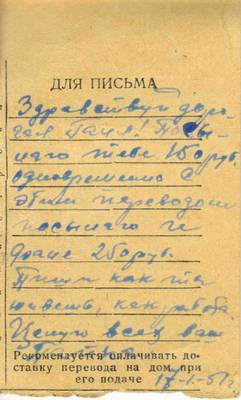 ДЛЯ ПИСЬМА
Здравствуй доро-
гая Галя! Посы-
лаю тебе 150 руб.
одновременно с
этим переводом
посылаю и
2 боруб.
Пиши как ты
живешь, как работа.
Целую всех ваш
Рекомендуется оплачивать до-
ставку перевода на дом при
его подаче 17-I-57г